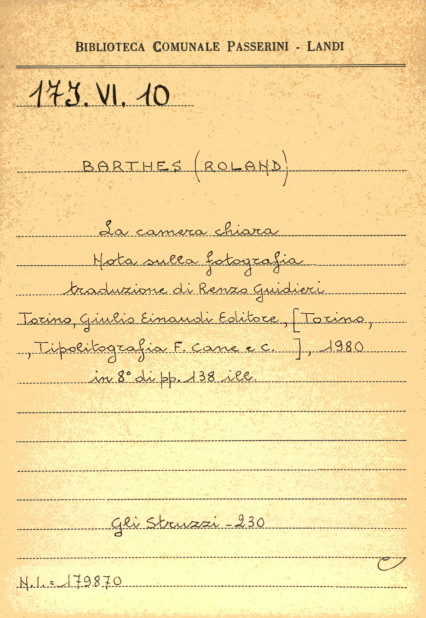 BIBLIOTECA COMUNALE PASSERINI - LANDI
17J. VI. 10
BARTHES (ROLAND)
La camera chiara
Nota sulla fotografia
traduzione di Renzo Guidieri
Torino, Giulio Einaudi Editore, [Torino,
, Tipolitografia F. Cane e C. ], 1980
in 8° di pp. 138 ill.
Gli Struzzi - 230
N.I. = 179870